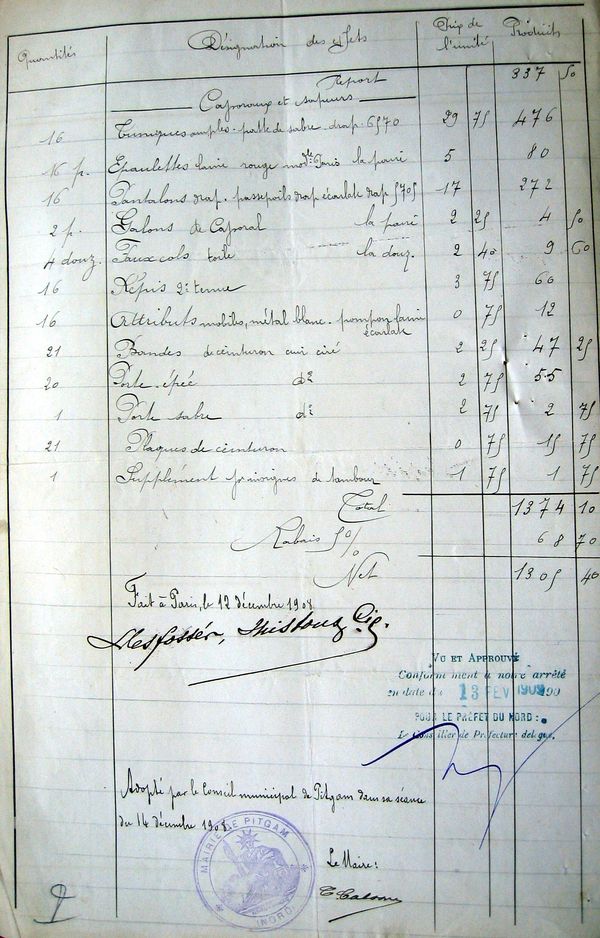 Quantités Désignation des effets Prix de l'unité Produits
Report 337 50
Caporaux et sapeurs
16 Tuniques amples - patte de sabre - drap 6570 29 75 476
16 p. Epaulettes laine rouge modle Paris la paire 5 80
16 Pantalons drap, passepoils drap écarlate drap 5705 17 272
2 p. Galons de Caporal la paire 2 25 4 50
4 douz. Faux cols toile la douz. 2 40 9 60
16 Képis 2e tenue 3 75 60
16 Attributs mobiles, métal blanc - pompon laine écarlate 0 75 12
21 Bandes de ceinturon cuir ciré 2 25 47 25
20 Porte-épée do 2 75 55
1 Porte sabre do 2 75 2 75
21 Plaques de ceinturon 0 75 15 75
1 Supplément pr insignes de tambour 1 75 1 75
Total 1374 10
Rabais 5% 68 70
Net 1305 40
Fait à Paris, le 12 décembre 1908
Cie.
VU ET APPROUVÉ
Conformément à notre arrêté
en date du 13 FEV 1909 190
POUR LE PRÉFET DU NORD :
Le Conseiller de Préfecture délégué,
Adopté par le Conseil municipal de Pitgam dans sa séance
du 14 décembre 1908
MAIRIE DE PITGAM
(NORD)
Le Maire :